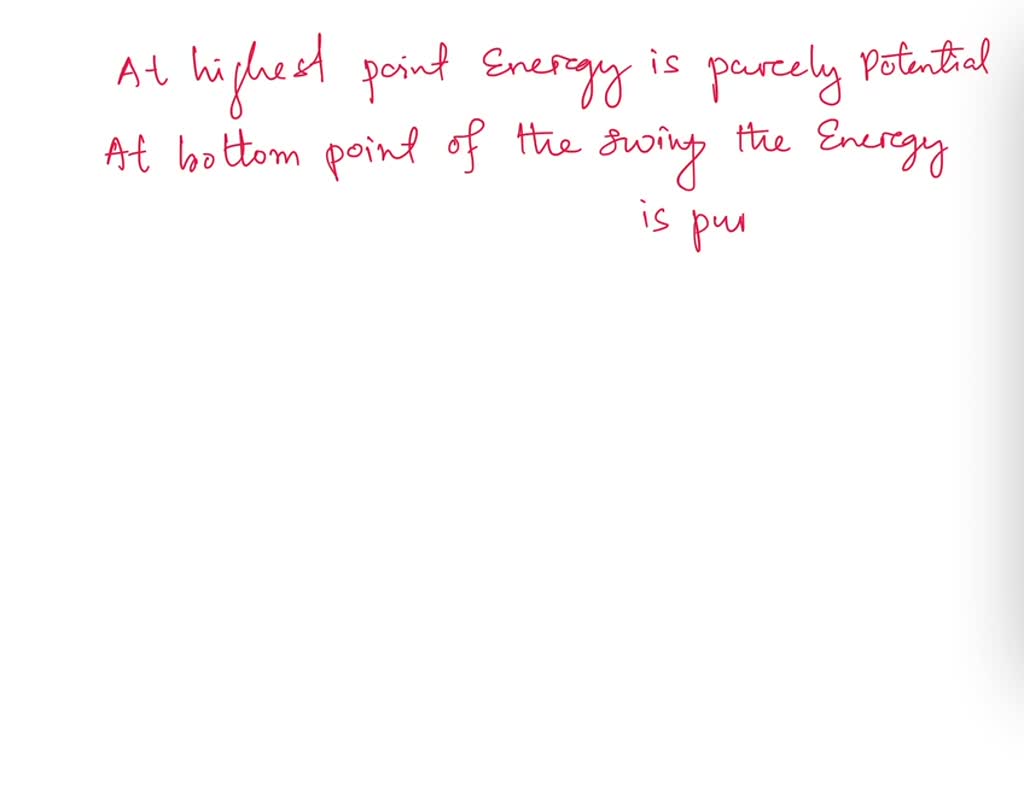 At highest point Energy is purely Potential
At bottom point of the swing the Energy
is pur